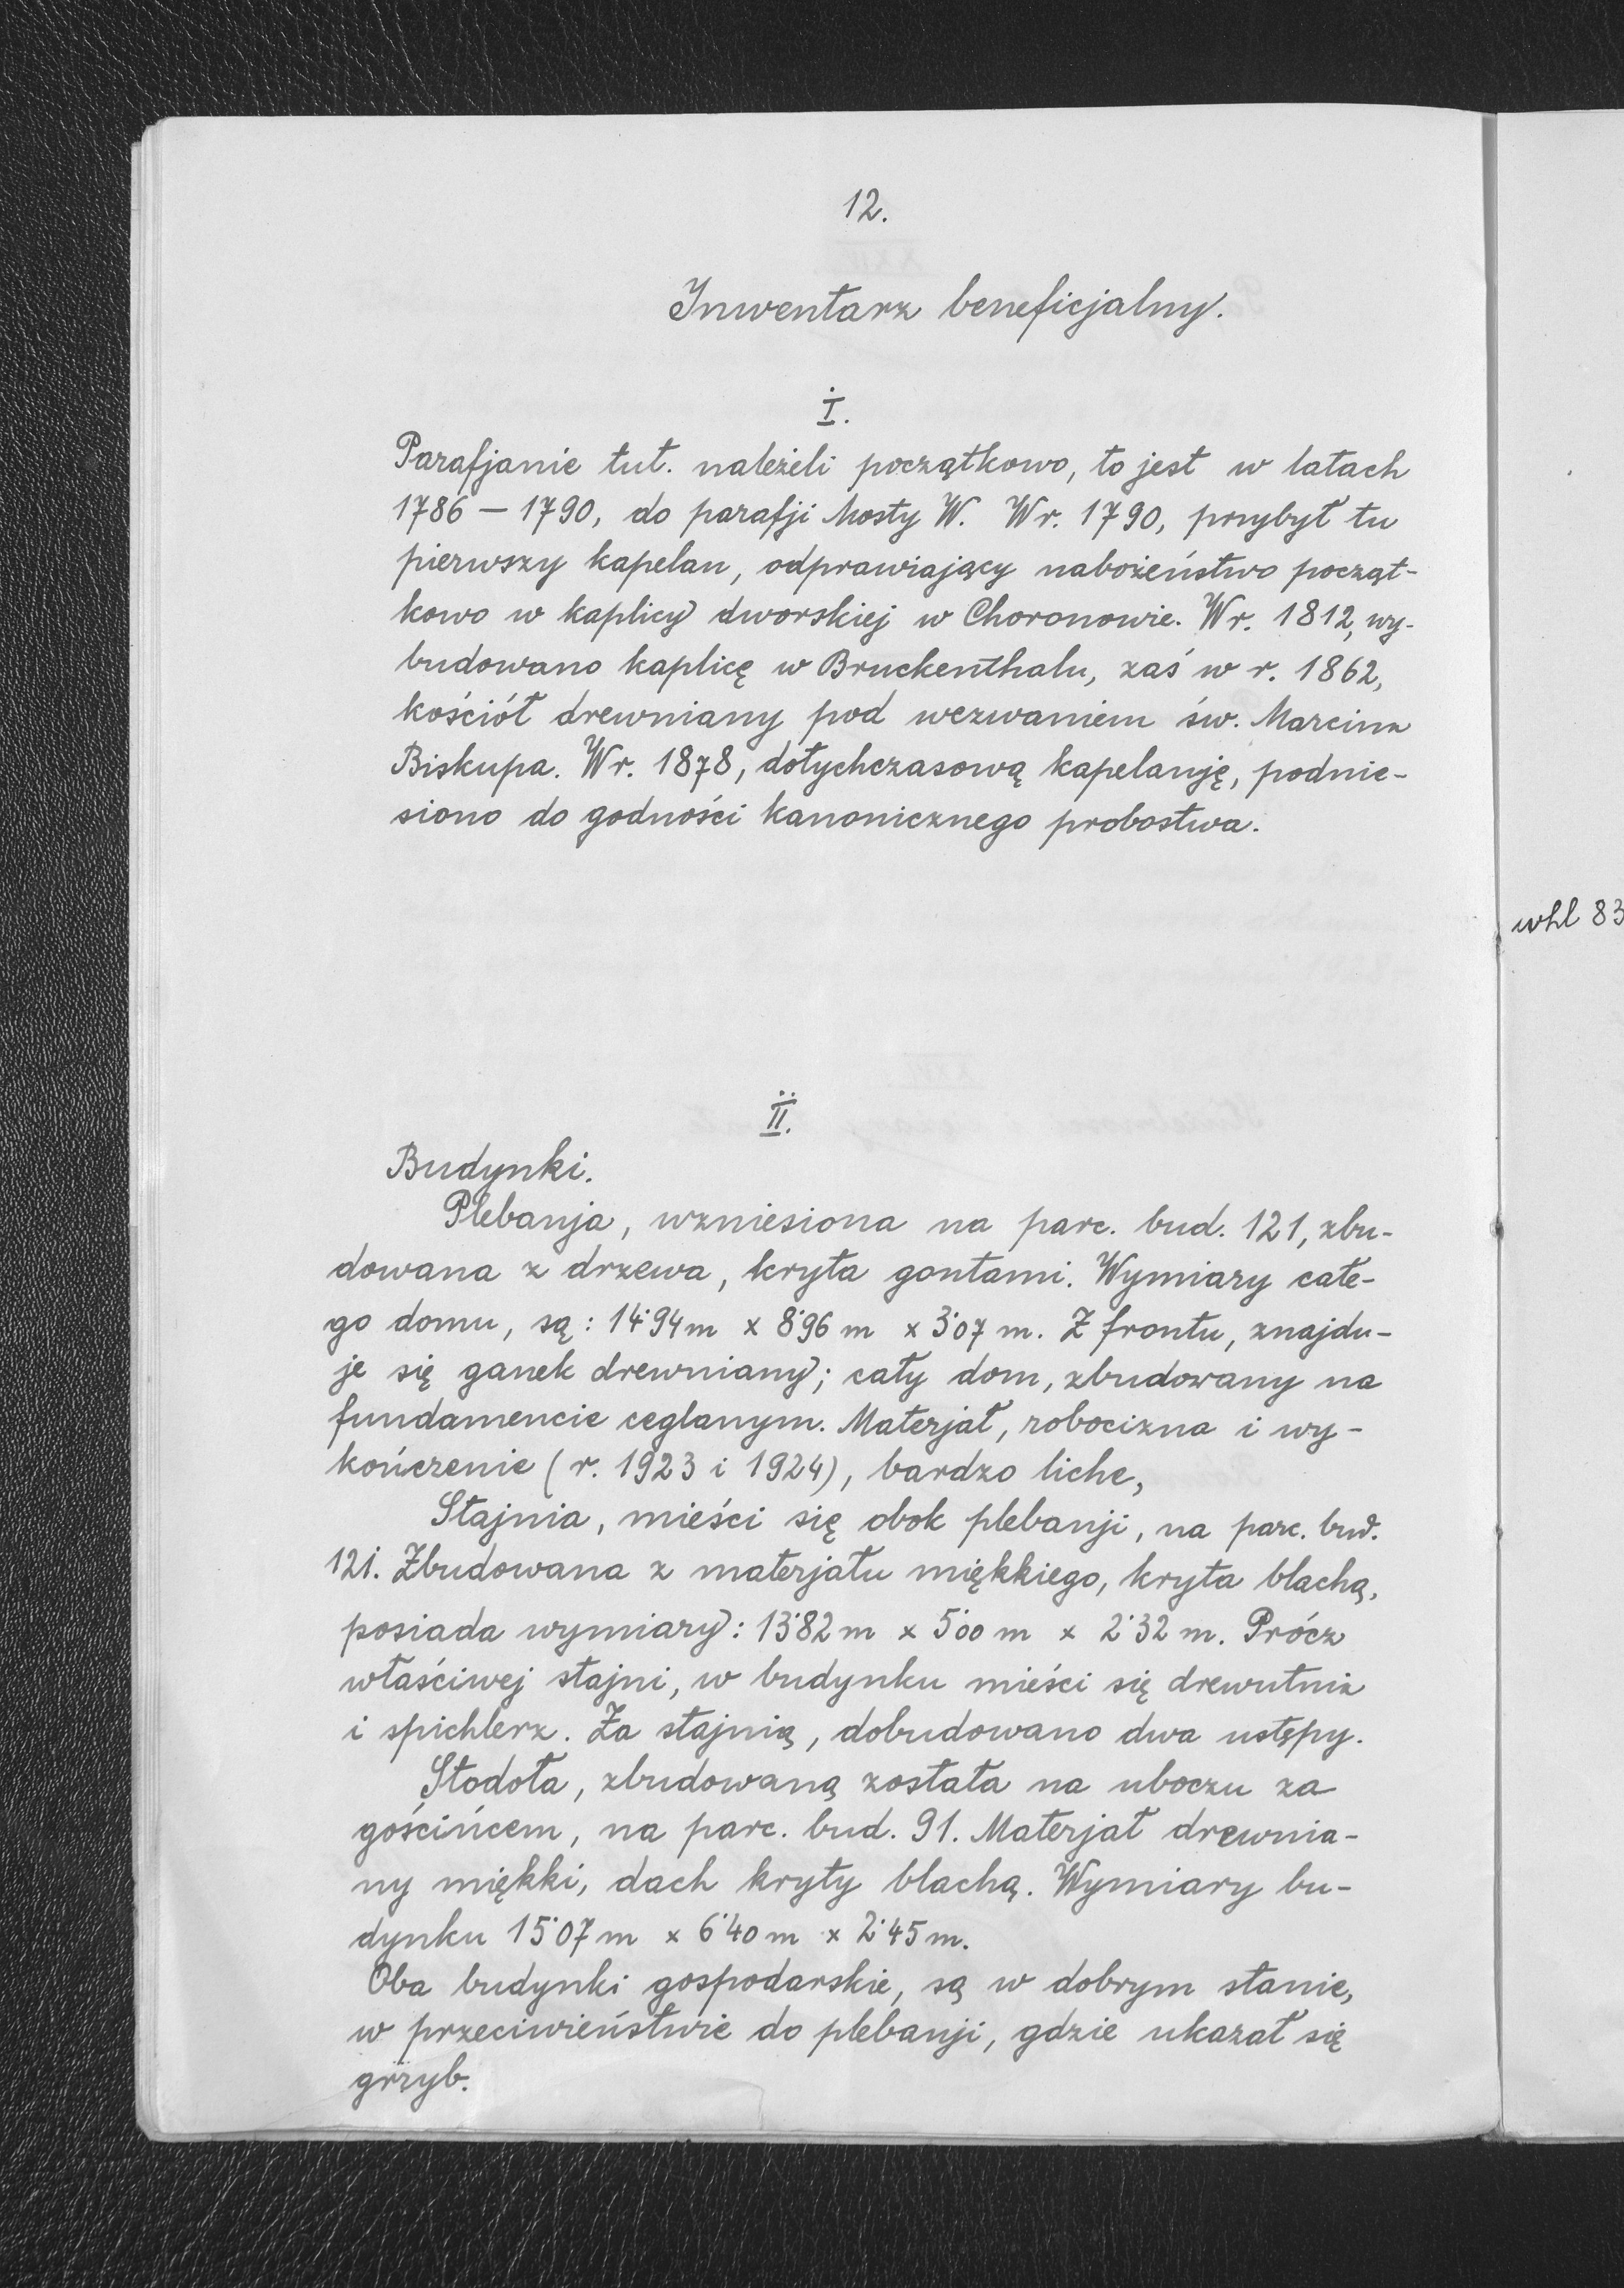 12.
Inwentarz beneficjalny.
I.
Parafjanie tut. należeli początkowo, to jest w latach
1786 — 1790, do parafji Mosty W. W r. 1790, przybył tu
pierwszy kapelan, odprawiający nabożeństwo począt-
kowo w kaplicy dworskiej w Choronowie. W r. 1812, wy-
budowano kaplicę w Bruckenthalu, zaś w r. 1862,
kościół drewniany pod wezwaniem św. Marcina
Biskupa. W r. 1878, dotychczasową kapelanję, podnie-
siono do godności kanonicznego probostwa.
II.
Budynki.
Plebanja, wzniesiona na parc. bud. 121, zbu-
dowana z drzewa, kryta gontami. Wymiary całe-
go domu, są: 14·94 m x 8·96 m x 3·07 m. Z frontu, znajdu-
je się ganek drewniany; cały dom, zbudowany na
fundamencie ceglanym. Materjał, robocizna i wy-
kończenie (r. 1923 i 1924), bardzo liche,
Stajnia, mieści się obok plebanji, na parc. bud.
121. Zbudowana z materjału miękkiego, kryta blachą,
posiada wymiary: 13·82 m x 5·00 m x 2·32 m. Prócz
właściwej stajni, w budynku mieści się drewutnia
i spichlerz. Za stajnią, dobudowano dwa ustępy.
Stodoła, zbudowaną została na uboczu za
gościńcem, na parc. bud. 91. Materjał drewnia-
ny miękki, dach kryty blachą. Wymiary bu-
dynku 15·07 m x 6·40 m x 2·45 m.
Oba budynki gospodarskie, są w dobrym stanie,
w przeciwieństwie do plebanji, gdzie ukazał się
grzyb.
whl 83